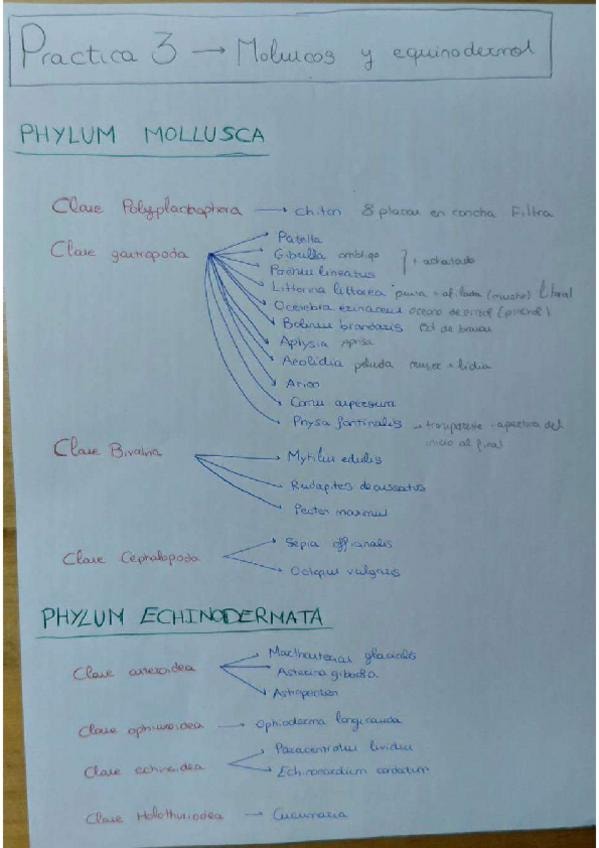 Practica 3 → Moluscos y equinodermos
PHYLUM MOLLUSCA
Clase Polyplachophera → chiton 8 placas en concha Filtra
Clase gastropoda
Patella
Gibulla ombligo
+ achatado
Littorina littorea punta + afilada (mucho) Litoral
Bolinus brandaris
Aplysia
Aeolidia peluda
Arion
Cornu aspersum
Physa fontinalis → transparente - apertura del
inicio al final
Clase Bivalvia
Mytilus edulis
Rudapites decussatus
Pecten maximus
Clase Cephalopoda
Sepia officinalis
Octopus vulgaris
PHYLUM ECHINODERMATA
Clase asteroidea
Marthasterias glacialis
Asterina gibbosa
Astropecten
Clase ophiuroidea → Ophioderma longicauda
Clase echinoidea
Paracentrotus lividus
Echinocardium cordatum
Clase Holothuriodea → Cucumaria